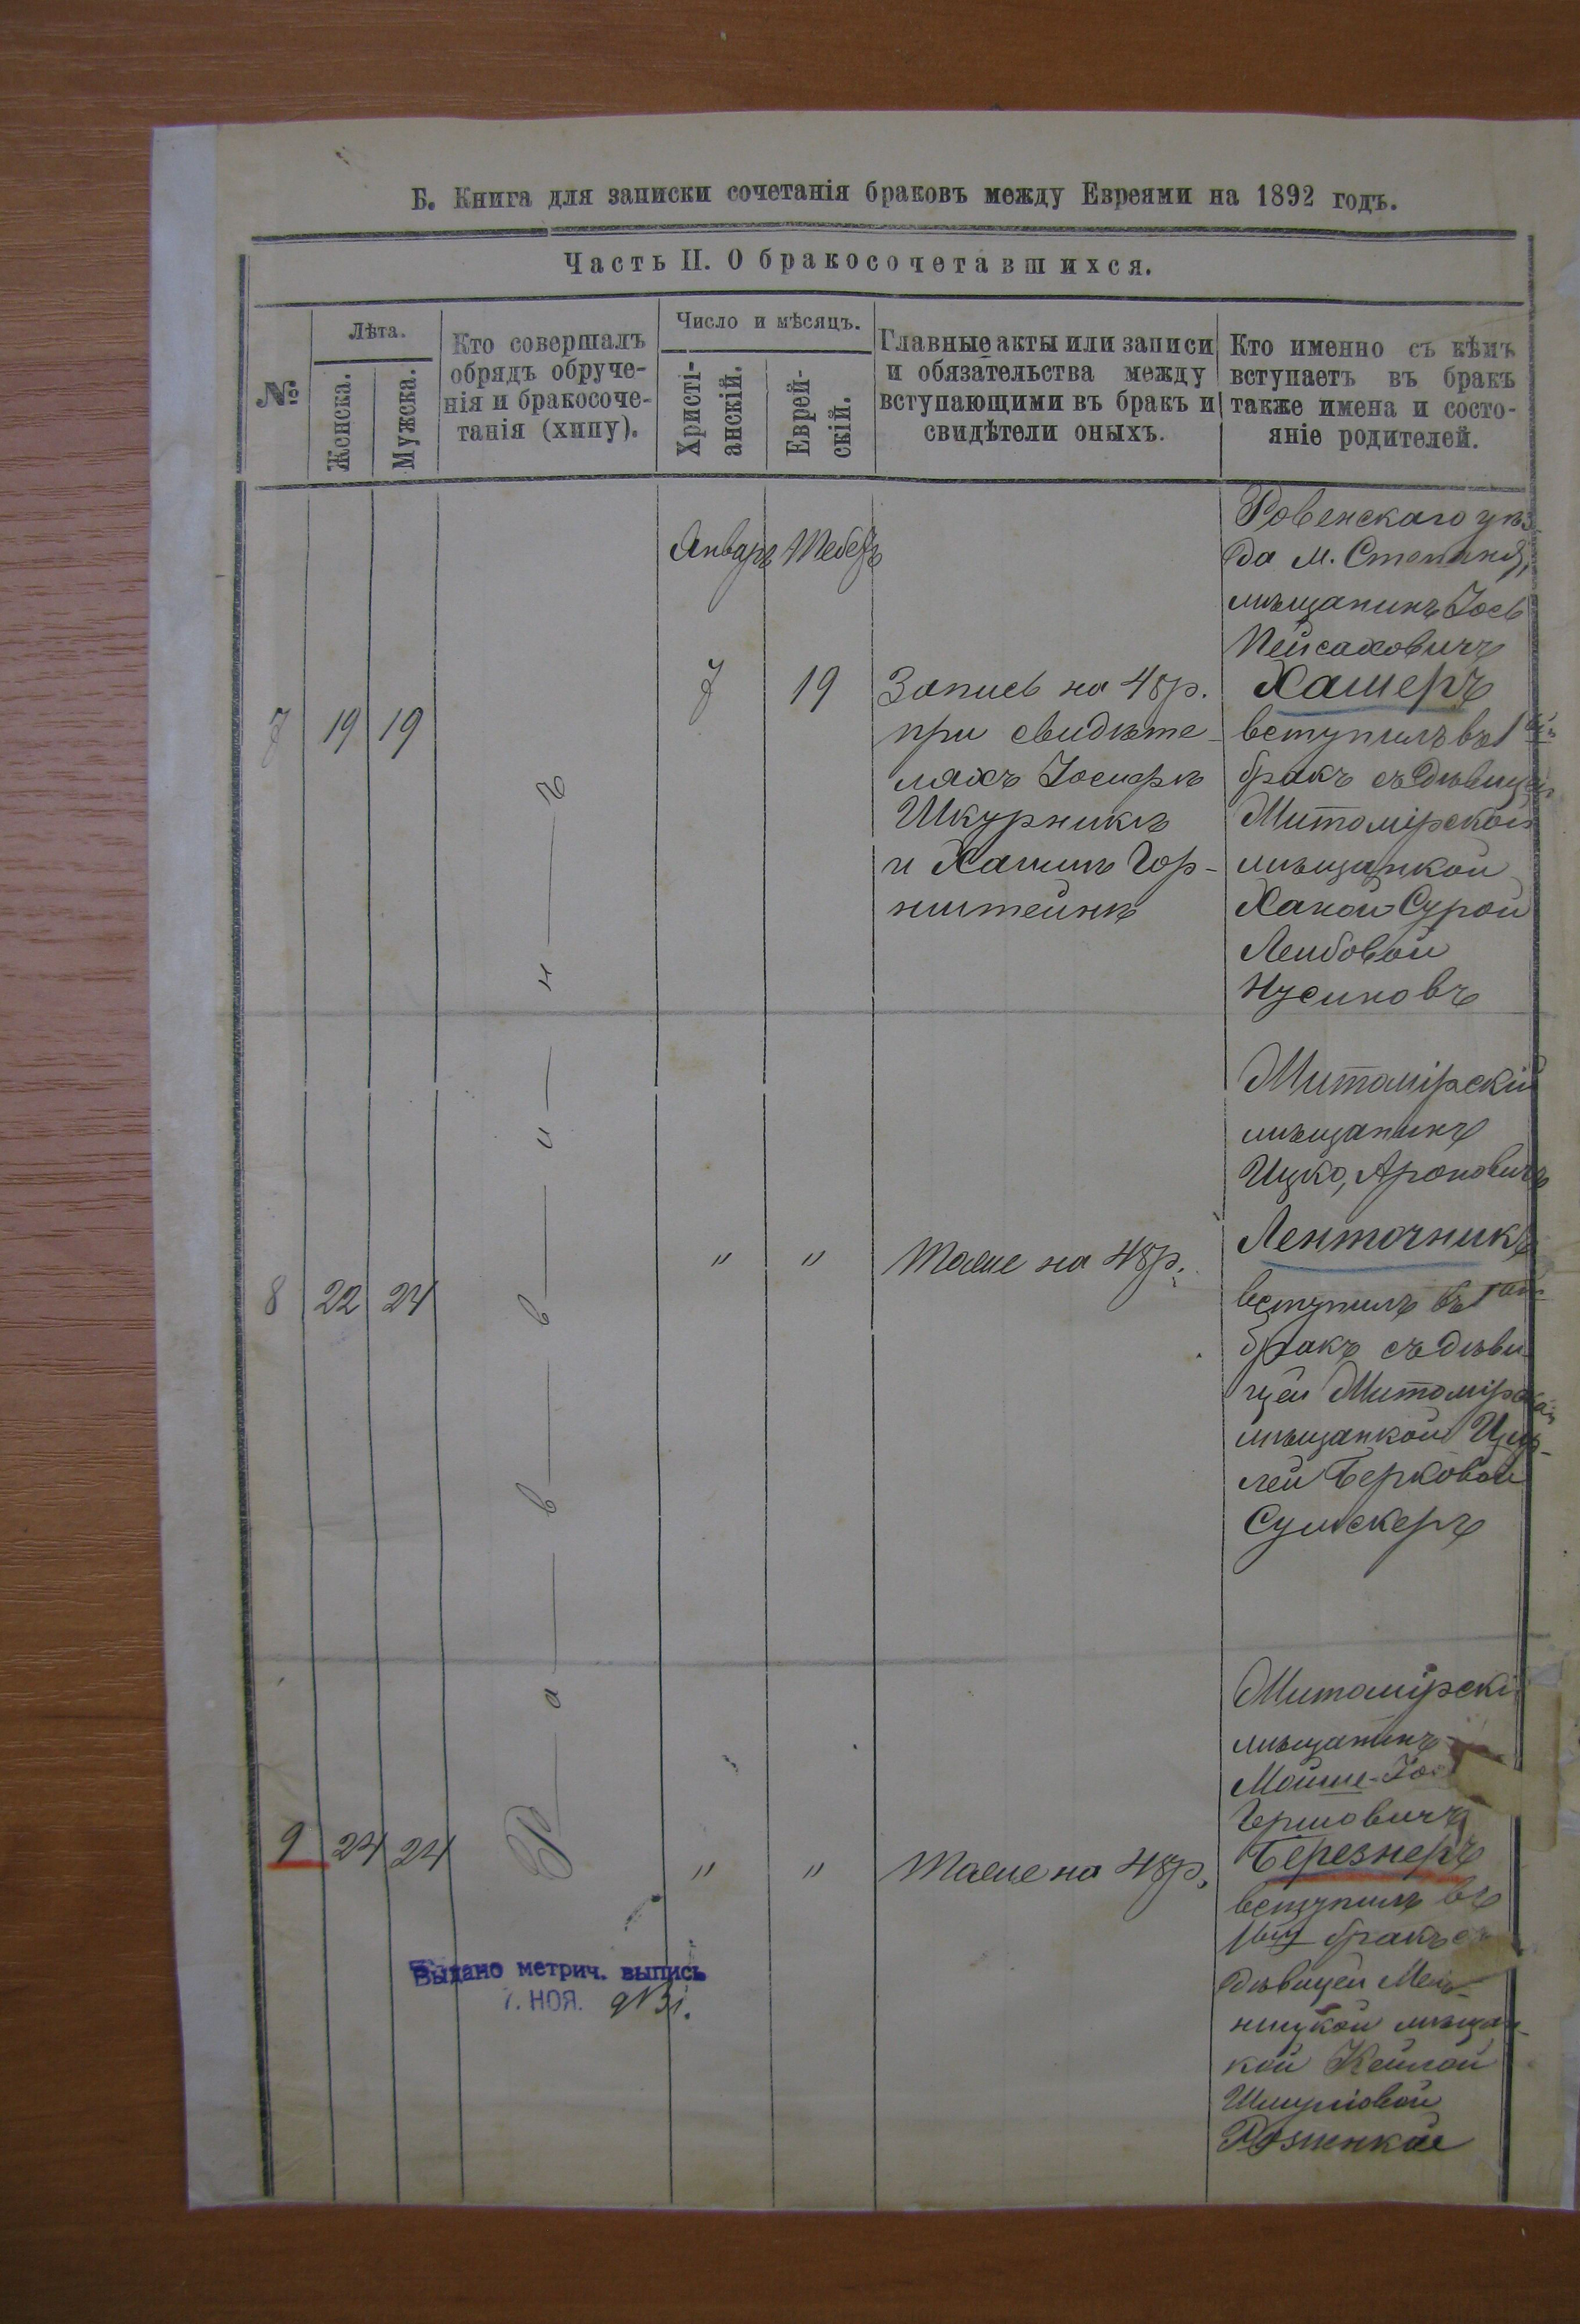 Б. Книга для записки сочетанія браковъ между Евреями на 1892 годъ.
Часть II. О бракосочетавшихся.
№
Лѣта.
Женска.
Мужска.
Кто совершалъ
обрядъ обруче-
нія и бракосоче-
танія (хипу).
Число и мѣсяцъ.
Христі-
анскій.
Еврей-
скій.
Главные акты или записи
и обязательства между
вступающими въ бракъ и
свидѣтели оныхъ.
Кто именно съ кѣмъ
вступаетъ въ бракъ
также имена и состо-
яніе родителей.
Январь Тебетъ
7 19 19
Раввинъ
7 19
Запись на 48 р.
при свидѣте-
ляхъ Іосифѣ
Шкурникъ
и Хаимѣ Гор-
нштейнѣ
Ровенскаго уѣз-
да м. Степаня,
мѣщанинъ Іось
Пейсаховичъ
Хашеръ
вступилъ въ 1ый
бракъ съ дѣвицей
Житомірской
мѣщанкой
Ханой Сурой
Лейбовой
Нусиновъ
8 22 24
" "
Тоже на 48 р.
Житомірскій
мѣщанинъ
Ицко, Ароновичъ
Ленточникъ
вступилъ въ 1ый
бракъ съ дѣви-
цей Житомірской
мѣщанкой
лей Берковой
Сумскеръ
9 24 24
" "
Тоже на 48 р.
Житомірскі
мѣщанинъ
Мойше-
Гершовичъ
Березнеръ
вступилъ въ
1ый бракъ съ
дѣвицей Мель-
ницкой мѣщан-
кой Кейлой
Шмулёвой
Выдано метрич. выпись
7. НОЯ.